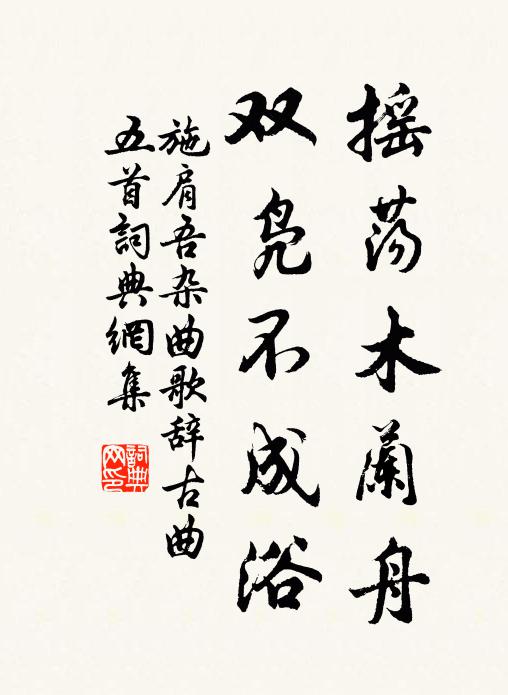 摇荡木蘭舟
双凫不成浴
施肩吾杂曲歌辞古曲
五首詞典網集
詞典
网印